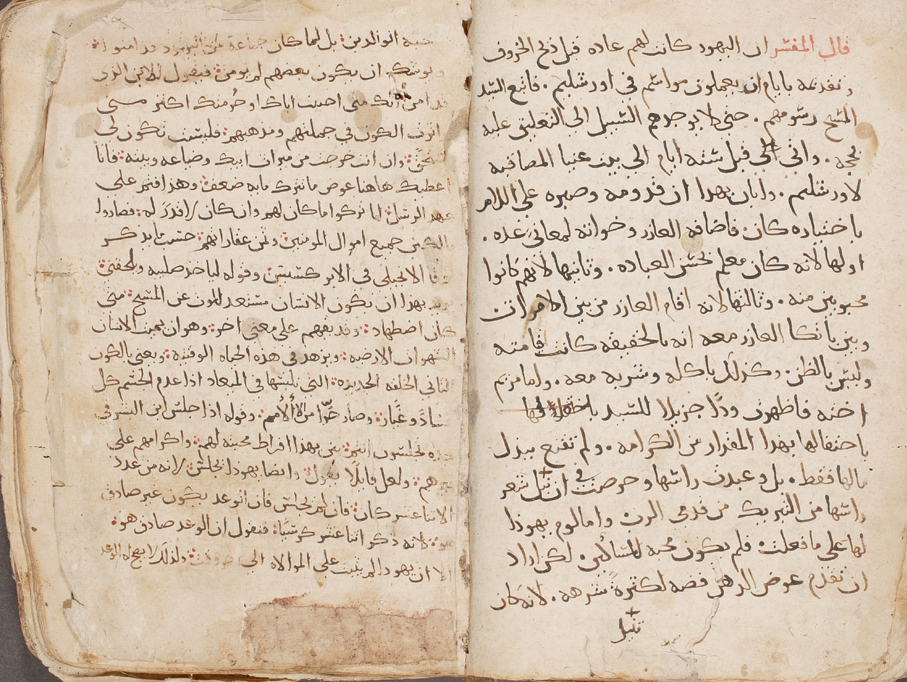 قال المفسر ان اليهود كانت لهم عاده قبل ذبح الخروف
وتقدمه بايام ان يعملون مواسم في اورشليم . فاتبع السيد
المسيح رسومهم . حتى لا يوجدهم السبيل الى التعليق عليه
بحجه . واتى قبل سته ايام الى بيت عنيا المصاقبه
لاورشليم . وابان بهدا ان قدومه وصبره على الالام
باختياره كان . فاضافه العازر وخواته لمعاني عده .
اولها لانه كان معلم لحسن العباده . وتانيها لانهم كانوا
محبوبين منه . وتالتها لانه اقام العازر من بين الاموات
وبين باتكا العازر معه انه بالحقيقه كانت اقامته
وليس بالظن . وكدلك باكله وشربه معه . واما مريم
اخته فاظهرت ودا جزيلا للسيد
باحتفالها بهدا المقدار من الكرامه . ولم تقنع ببدل
مالها فقط . بل وعبدت راسها وحرصت في ان تنل شعر
راسها من التبريك من قدمي الرب . واما لوم يهودا
لها على ما فعلت . فلم يكون محبه للمساكين . لكن اراد
ان تقدم عوض الدهن فضه لكترة شرهه . لانه كان
الوالدين : بل لما كان جماعة من اليهود قد امنوا :
ويوشك ان يكون بعضهم لم يومن : فيقول للابن الدي
قد امن انك متى احببت اباك او حرمتك اكتر مني
الكون في جملتهم ومدهبهم : فليس تكون لي
وان انت حرمت من ميرات ابيك وضياعه وبيته : فانا
اعطيك هاهنا عوض ما تترك مايه ضعف : وهدا فتم على
عهد الرسل : لما تركوا ما كان لهم وان كان
جميع اموال المومنين : وتمن عقاراتهم : حسب ما يدكر
الانجيلي في الابركسيس : وقوله لياخد صليبه ويلحقني :
بهدا ان يكون الانسان مستعد للموت عن المسيح : متى
كان اضطهاد : وقد يفهم على معنى اخر : وهو ان يميت الانسان
الشهوات الارضيه : ويزهد في هذه الحياه الوقتيه : ويعني بالكون
التاني الخلقه الجديده : التي يلبسها في الميعاد ادا عدم الجسم كل
فساد وغبار : وصار حرا من الالام : وقوله ادا جلس ابن البشر في
مجده تجلسون انتم : بين بهدا افراط محبته لهم : واكرامهم على
غيرهم : ولعل قايلا يقول : وايضا يهودا يجلس : لانه من عدد
الاتنا عشر كان : فان لم يجلس فان الوعد يكون غير صادق
لانه دكر اتنا عشر كرسيا : فنقول ان الوعد صادق هو :
الا ان يهودا لم يتبت على الموالاه الى